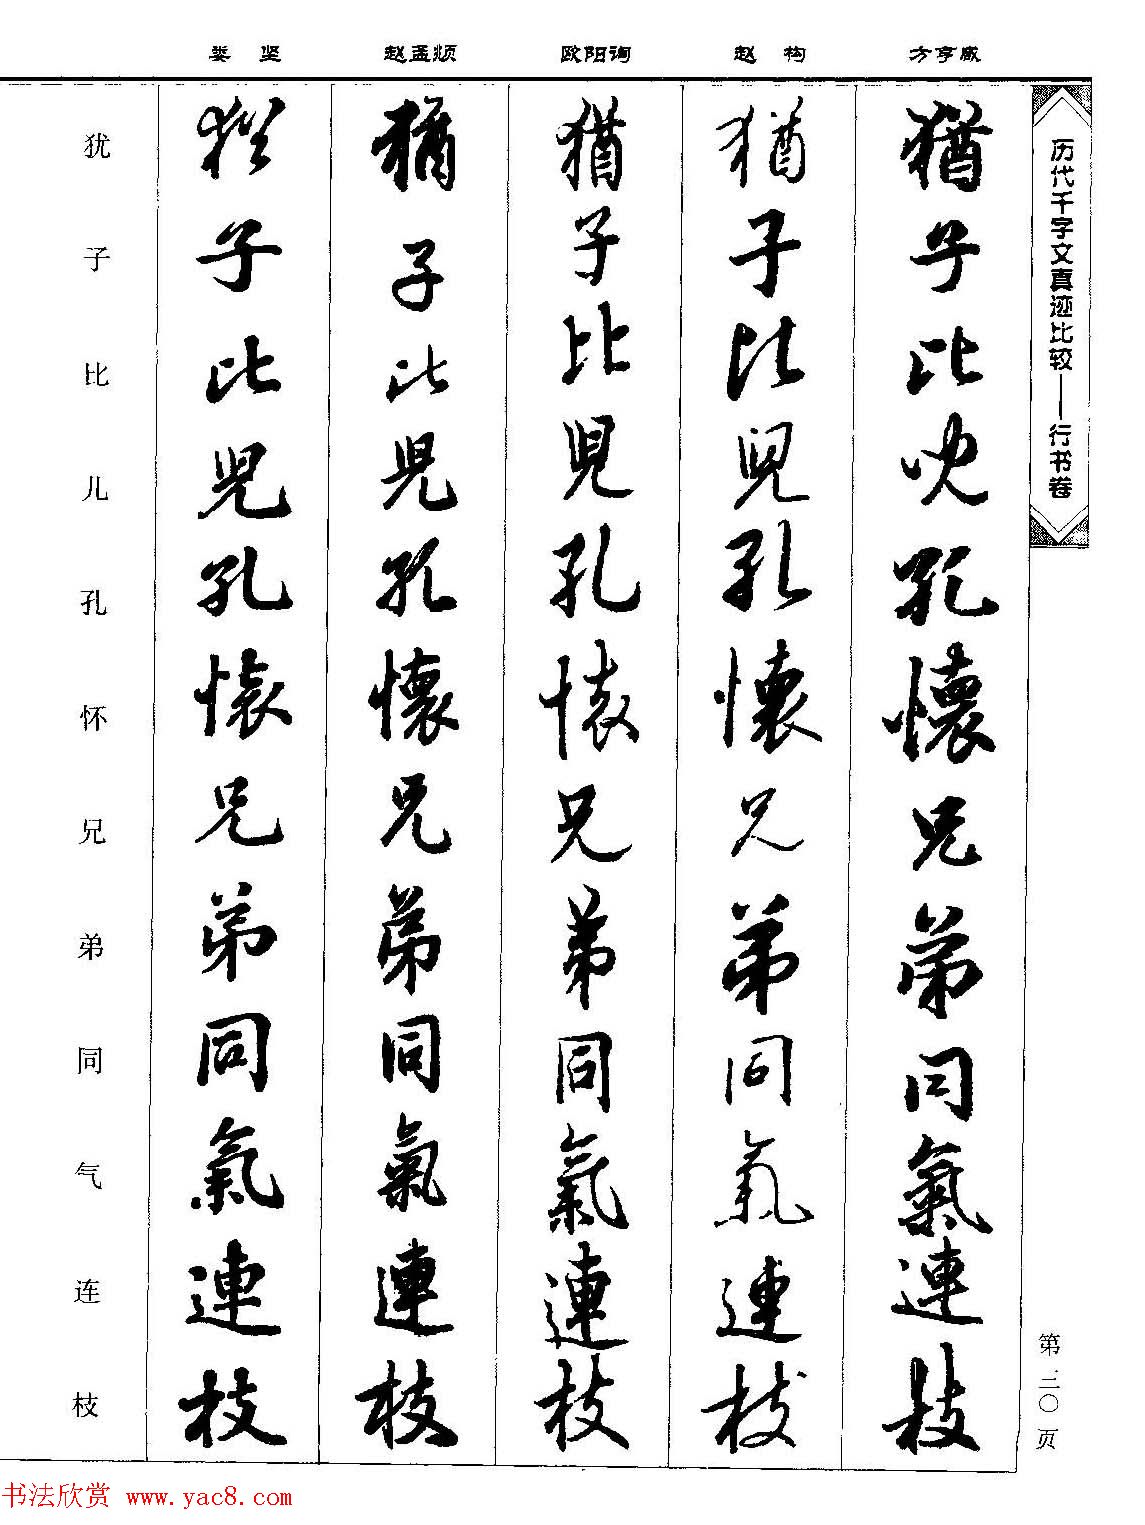 历代千字文真迹比较——行书卷
第三〇页
方亨咸
猶子比兒孔懷兄弟同氣連枝
赵构
猶子比兒孔懷兄弟同氣連枝
欧阳询
猶子比兒孔懷兄弟同氣連枝
赵孟𫖯
猶子比兒孔懷兄弟同氣連枝
娄坚
猶子比兒孔懷兄弟同氣連枝
犹子比儿孔怀兄弟同气连枝
书法欣赏 www.yac8.com